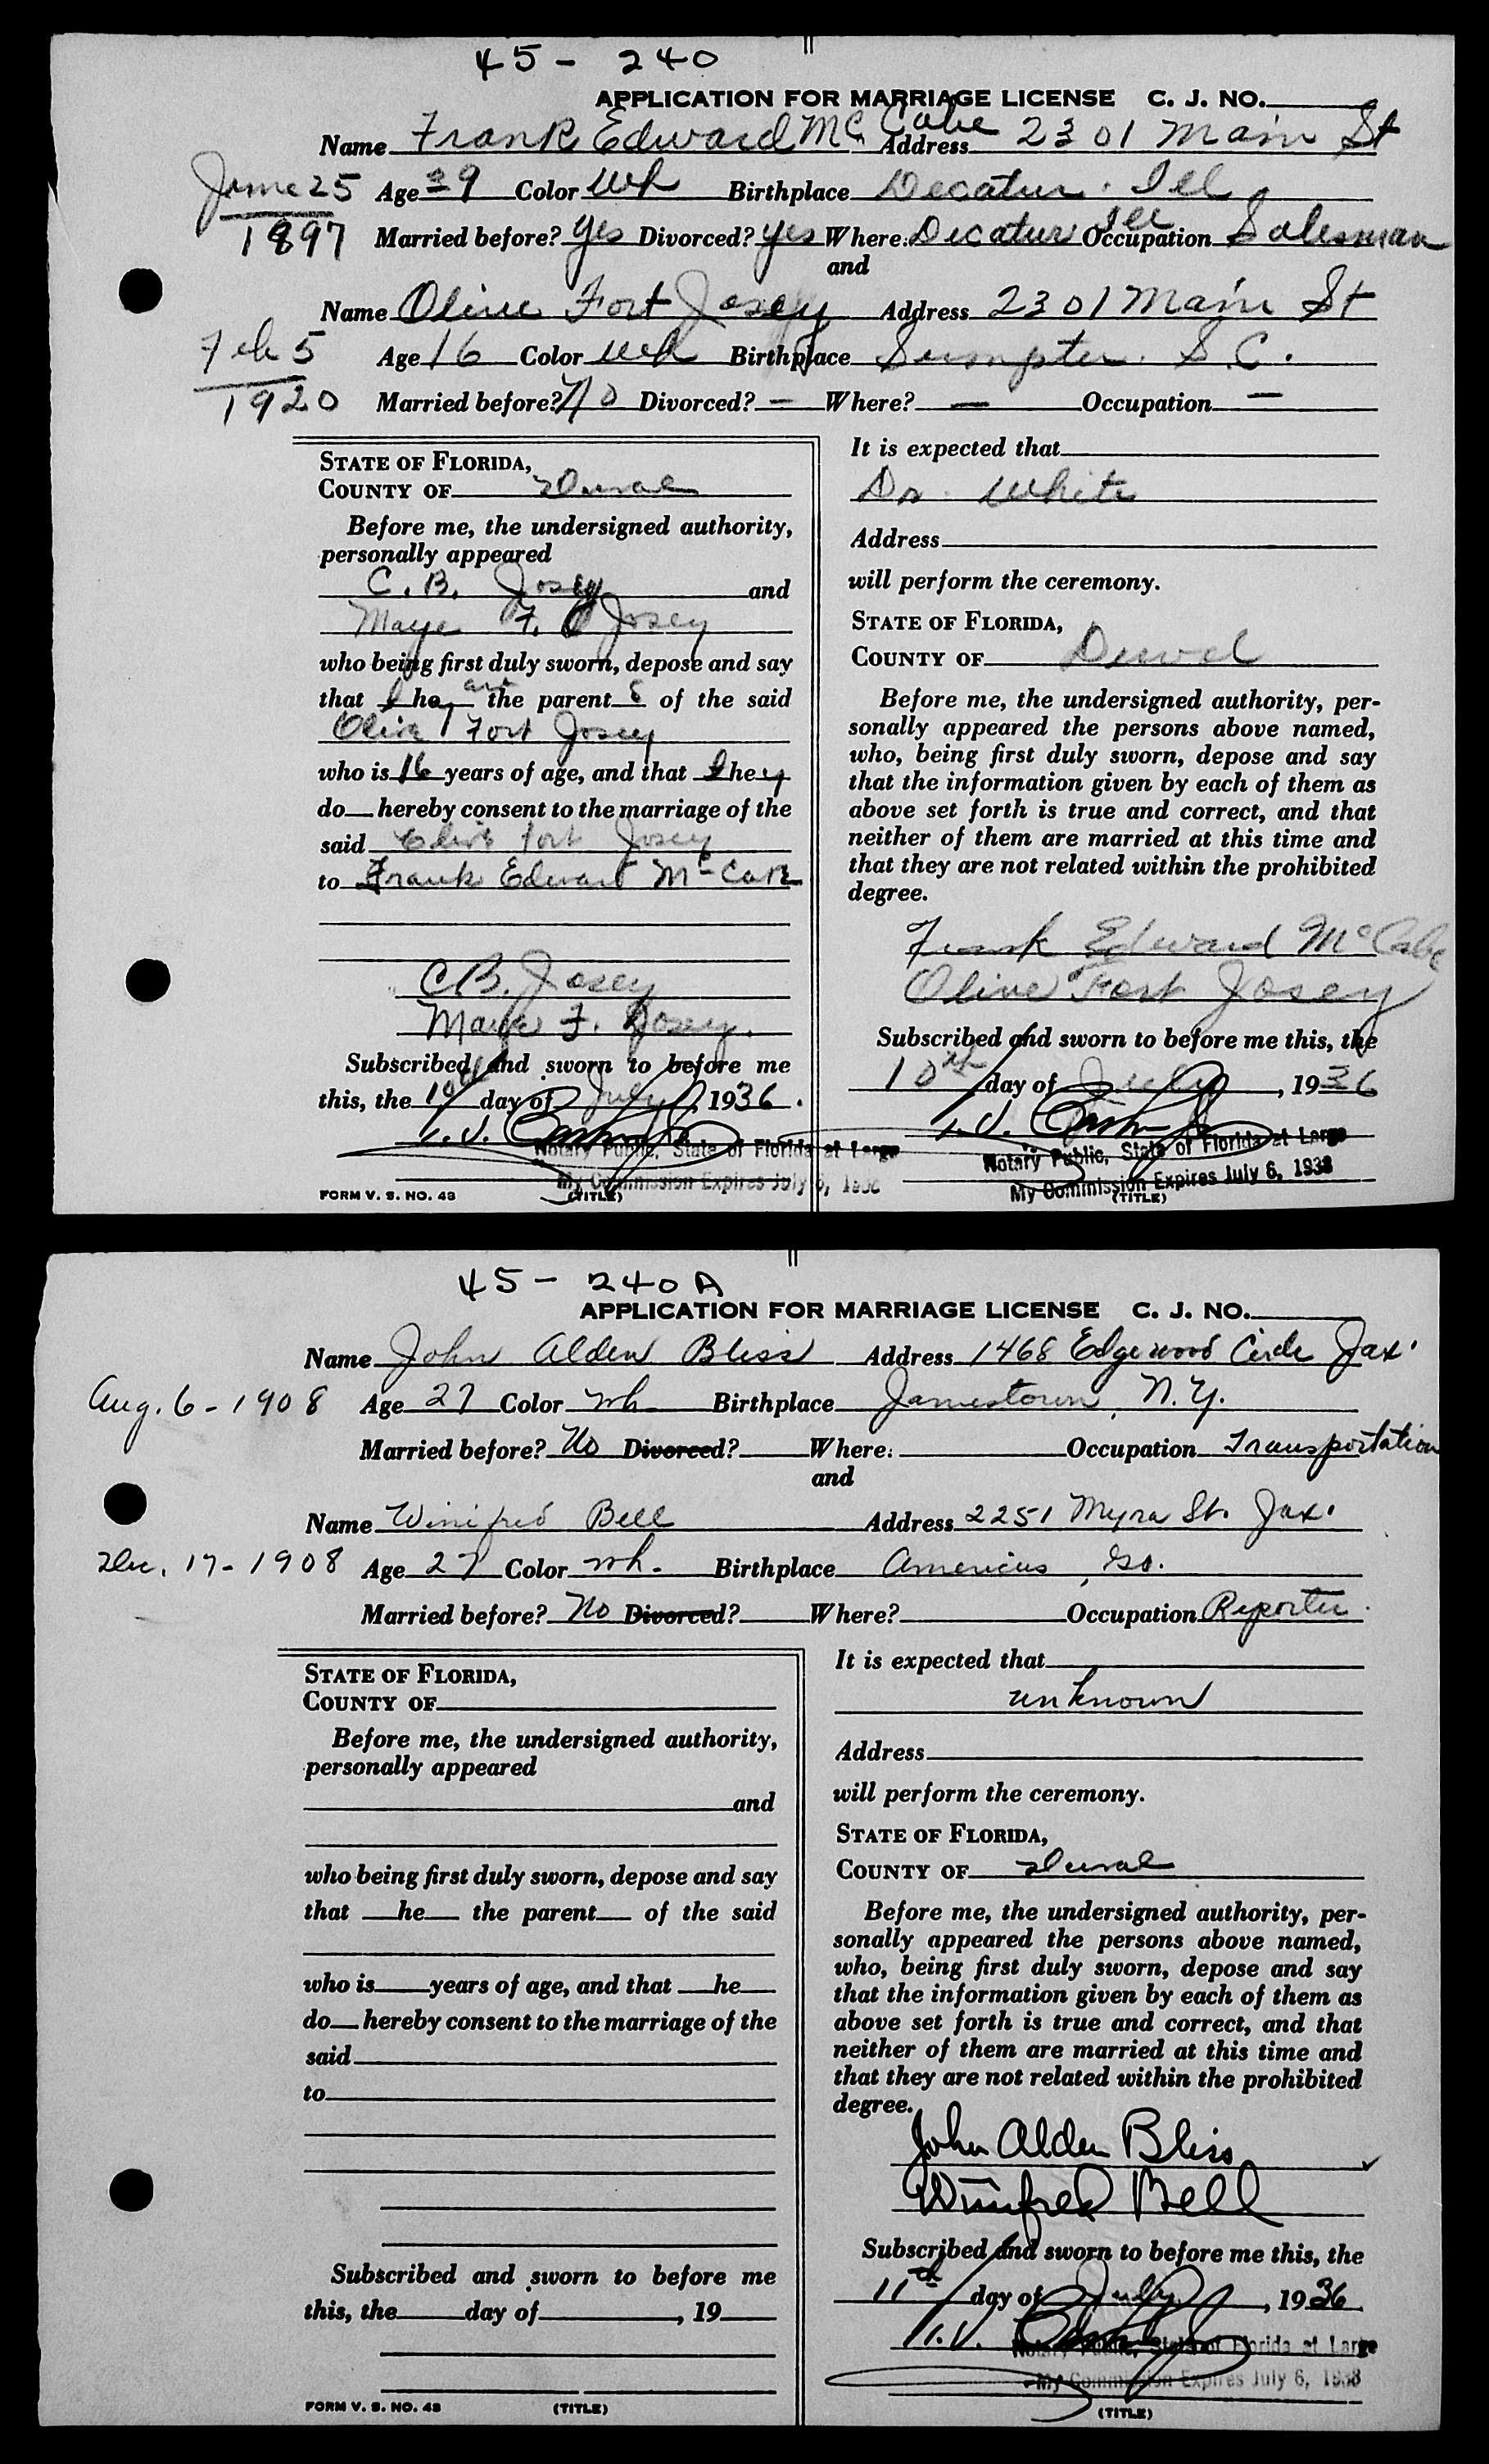 45 - 240
APPLICATION FOR MARRIAGE LICENSE C. J. NO.
Name Frank Edward Mc Cabe Address 2301 Main St
June 25 Age 39 Color Wh Birthplace Decatur, Ill
1897 Married before? Yes Divorced? yes Where: Decatur Ill Occupation Salesman
and
Name Olive Fort Josey Address 2301 Main St
Feb 5 Age 16 Color Wh Birthplace Sumpter. S.C.
1920 Married before? No Divorced? – Where? – Occupation –
STATE OF FLORIDA,
COUNTY OF Duval
Before me, the undersigned authority,
personally appeared
C. B. Josey and
Maye F. Josey
who being first duly sworn, depose and say
that they are the parents of the said
Olive Fort Josey
who is 16 years of age, and that they
do hereby consent to the marriage of the
said Olive Fort Josey
to Frank Edward McCabe
C B. Josey
Maye F. Josey.
Subscribed and sworn to before me
this, the 10th day of July, 1936.
Notary Public, State of Florida at Large
My Commission Expires July 6, 1938
FORM V. S. NO. 43 (TITLE)
It is expected that
Dr. White
Address
will perform the ceremony.
STATE OF FLORIDA,
COUNTY OF Duval
Before me, the undersigned authority, per-
sonally appeared the persons above named,
who, being first duly sworn, depose and say
that the information given by each of them as
above set forth is true and correct, and that
neither of them are married at this time and
that they are not related within the prohibited
degree.
Frank Edward McCabe
Olive Fort Josey
Subscribed and sworn to before me this, the
10th day of July, 1936
Notary Public, State of Florida at Large
My Commission Expires July 6, 1938
(TITLE)
45 - 240 A
APPLICATION FOR MARRIAGE LICENSE C. J. NO.
Name John Alden Bliss Address 1468 Edgewood Circle Jax.
Aug. 6 - 1908 Age 27 Color wh Birthplace Jamestown, N.Y.
Married before? No Divorced? Where: Occupation Transportation
and
Name Winifred Bell Address 2251 Myra St. Jax.
Dec. 17 - 1908 Age 27 Color wh. Birthplace Americus, Ga.
Married before? No Divorced? Where? Occupation Reporter.
STATE OF FLORIDA,
COUNTY OF
Before me, the undersigned authority,
personally appeared
and
who being first duly sworn, depose and say
that he the parent of the said
who is years of age, and that he
do hereby consent to the marriage of the
said
to
Subscribed and sworn to before me
this, the day of , 19
FORM V. S. NO. 43 (TITLE)
It is expected that
unknown
Address
will perform the ceremony.
STATE OF FLORIDA,
COUNTY OF Duval
Before me, the undersigned authority, per-
sonally appeared the persons above named,
who, being first duly sworn, depose and say
that the information given by each of them as
above set forth is true and correct, and that
neither of them are married at this time and
that they are not related within the prohibited
degree.
John Alden Bliss
Winifred Bell
Subscribed and sworn to before me this, the
11th day of July, 1936
Notary Public, State of Florida at Large
My Commission Expires July 6, 1938
(TITLE)